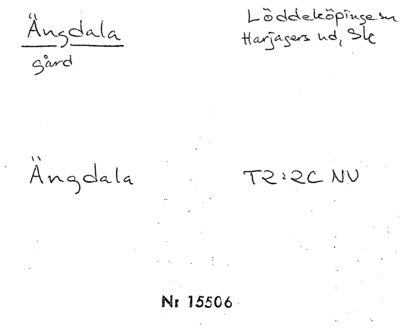 Ängdala
gård
Löddeköpinge sn
Harjagers hd, Sk
Ängdala
T2:2C NV
Nr 15506